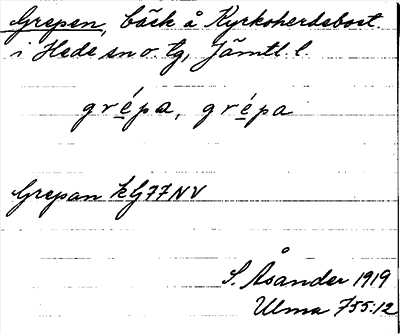 Grepen, bäck å Kyrkoherdebost.
i Hede sn o. tg, Jämtl. l.
grépa, grépa
Grepan kG77NV
S. Åsander 1919
Ulma 755:12